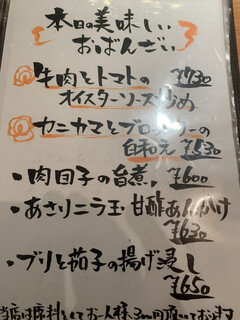 本日の美味しい
おばんざい
牛肉とトマトの ¥730
オイスターソース炒め
カニカマとブロッコリーの
白和え ¥530
・肉団子の旨煮 ¥600
・あさりニラ玉 甘酢あんかけ
¥630
・ブリと茄子の揚げ浸し
¥650
当店は席料としてお一人様300円頂いております